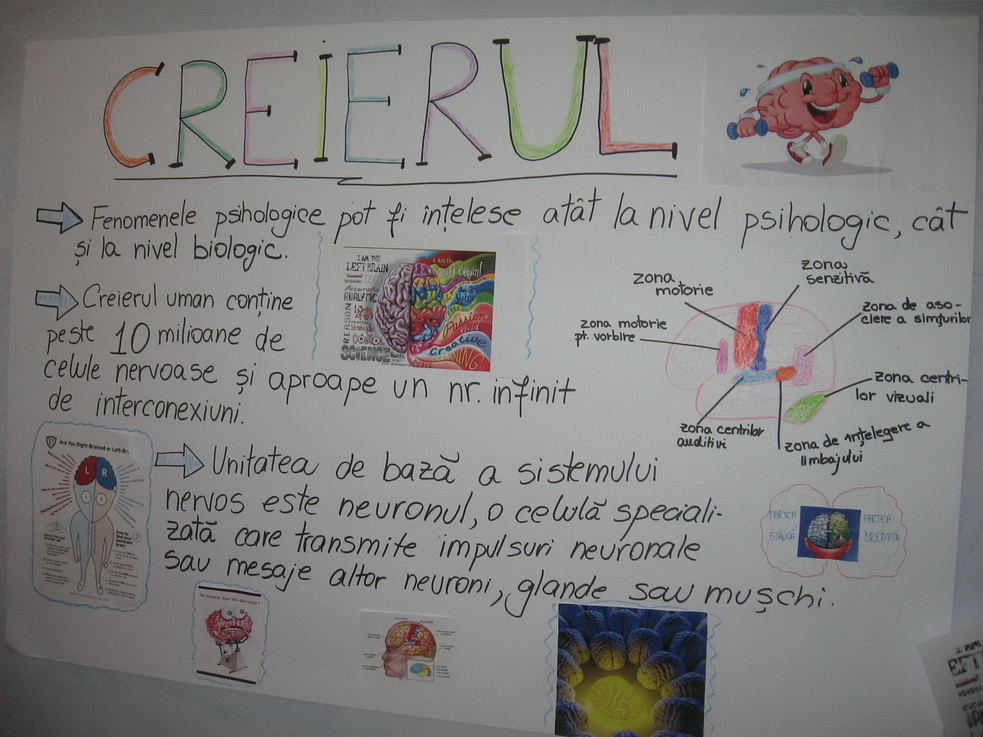 CREIERUL
Fenomenele psihologice pot fi înțelese atât la nivel psihologic, cât
și la nivel biologic.
I AM THE
LEFT BRAIN
ANALYTIC
REASON
Strategic
SCIENCE
I AM THE
Right Brain!
Passion
Creative
Creierul uman conține
peste 10 milioane de
celule nervoase și aproape un nr. infinit
de interconexiuni.
zona
motorie
zona
senzitivă
zona motorie
pt. vorbire
zona de aso-
ciere a simțurilor
zona centri-
lor vizuali
zona centrilor
auditivi
zona de înțelegere a
limbajului
Are You Right-Brained or Left-Br
L R
Unitatea de bază a sistemului
nervos este neuronul, o celulă speciali-
zată care transmite impulsuri neuronale
sau mesaje altor neuroni, glande sau mușchi.
PARTEA
STÂNGĂ
PARTEA
DREAPTĂ